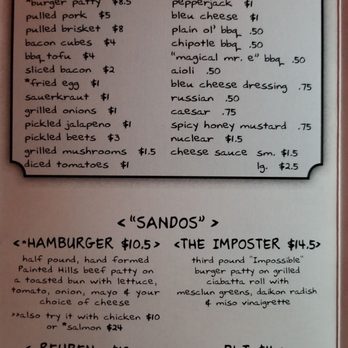 *burger patty $8.5
pulled pork $5
pulled brisket $8
bacon cubes $4
bbq tofu $4
sliced bacon $2
*fried egg $1
sauerkraut $1
grilled onions $1
pickled jalapeno $1
pickled beets $3
grilled mushrooms $1.5
diced tomatoes $1
pepperjack $1
bleu cheese $1
plain ol' bbq .50
chipotle bbq .50
"magical mr. e" bbq .50
aioli .50
bleu cheese dressing .75
russian .50
caesar .75
spicy honey mustard .75
nuclear $1.5
cheese sauce sm. $1.5
lg. $2.5
<"SANDOS">
<*HAMBURGER $10.5>
half pound, hand formed
Painted Hills beef patty on
a toasted bun with lettuce,
tomato, onion, mayo & your
choice of cheese
>>also try it with chicken $10
or *salmon $24
<THE IMPOSTER $14.5>
third pound "Impossible"
burger patty on grilled
ciabatta roll with
mesclun greens, daikon radish
& miso vinaigrette